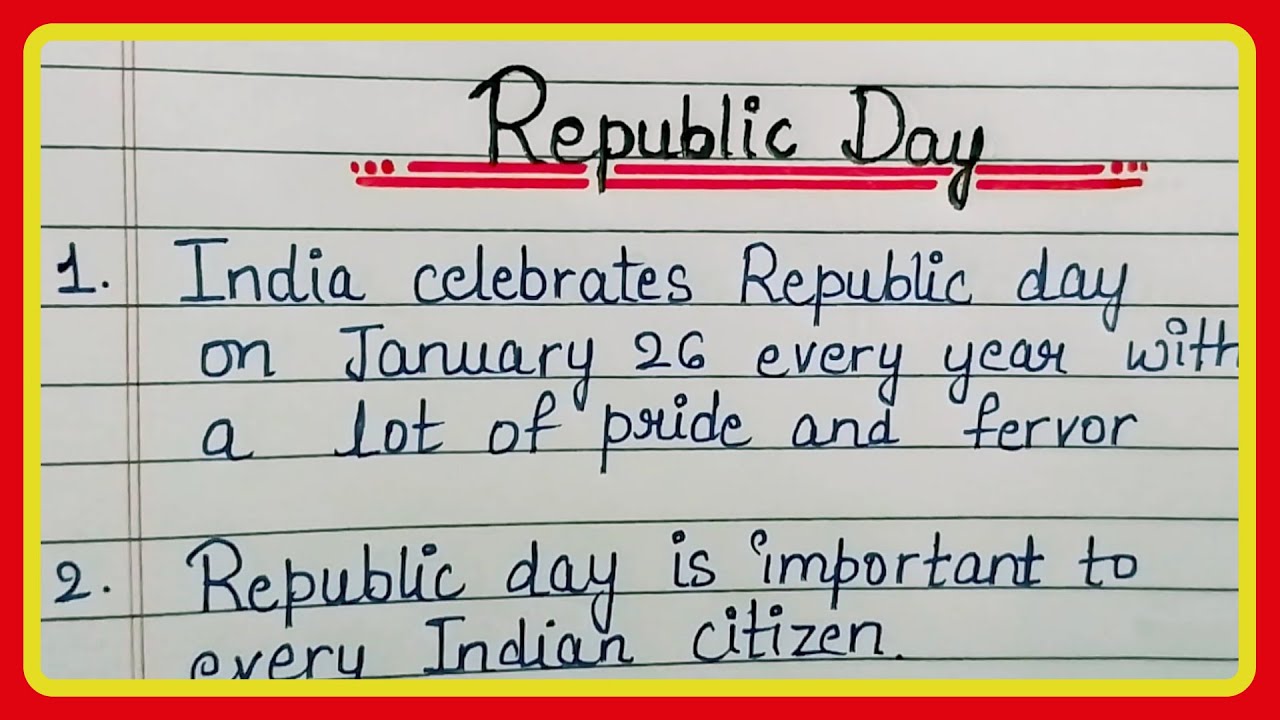 Republic Day
1. India celebrates Republic day
on January 26 every year with
a lot of pride and fervor
2. Republic day is important to
every Indian citizen.